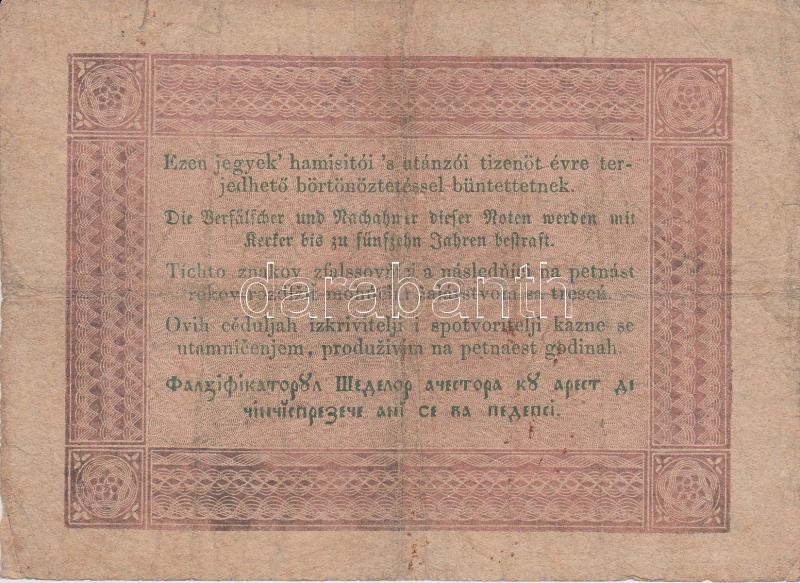 Ezen jegyek' hamisitói 's utánzói tizenöt évre ter-
jedhető börtönöztetéssel büntettetnek.
Die Verfälscher und Nachahmer dieser Noten werden mit
Kerker bis zu fünfzehn Jahren bestraft.
Tíchto znakov zfalssovňíci a násleďňíťi na petnást
rokov sa trescú.
darabanth
Ovih céduljah izkrivitelji i spotvoritelji kazne se
utamničenjem, produživim na petnaest godinah.
Фалꙅіфікаторꙋл Шеделор ачестора кꙋ арест де
чінчіспрезече ані се ва педепсі.